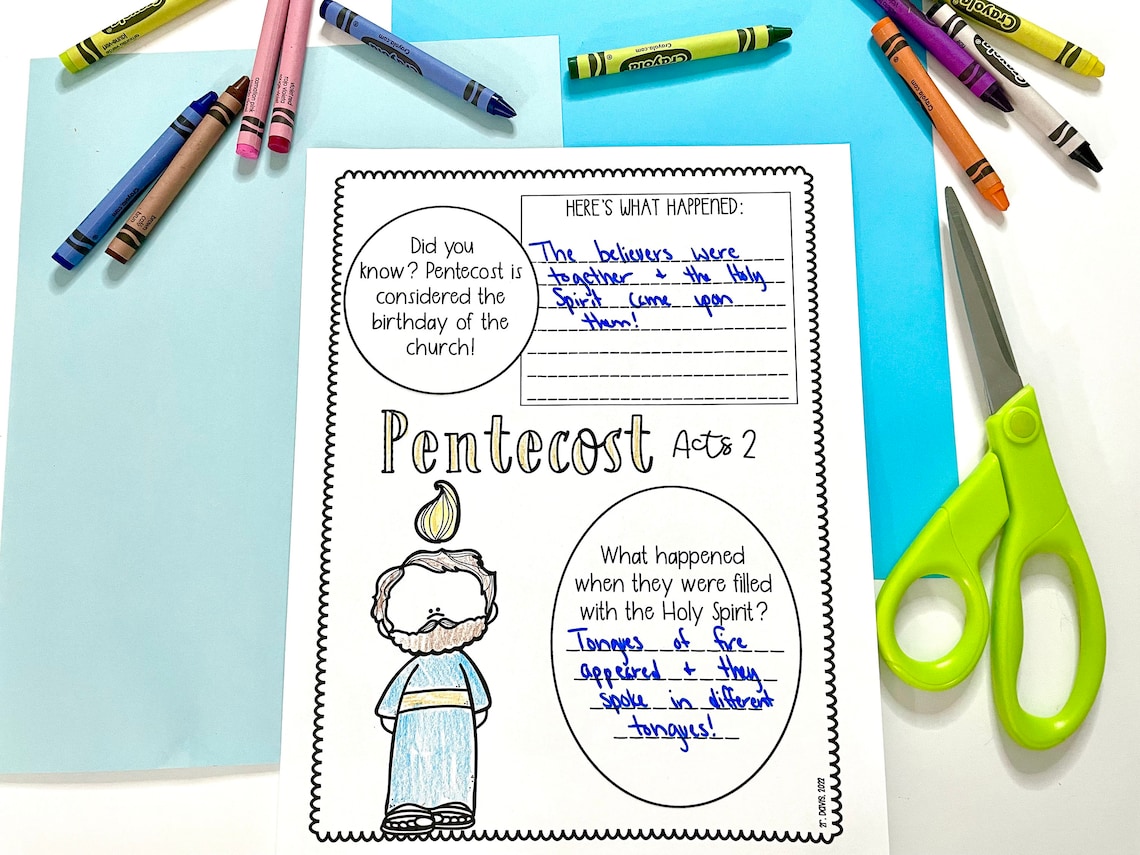 Did you
know? Pentecost is
considered the
birthday of the
church!
HERE'S WHAT HAPPENED:
The believers were
together + the Holy
Spirit came upon
them!
Pentecost Acts 2
What happened
when they were filled
with the Holy Spirit?
Tongues of fire
appeared + they
spoke in different
tongues!
Crayola
Crayola
Crayola
Crayola.com
Crayola.com